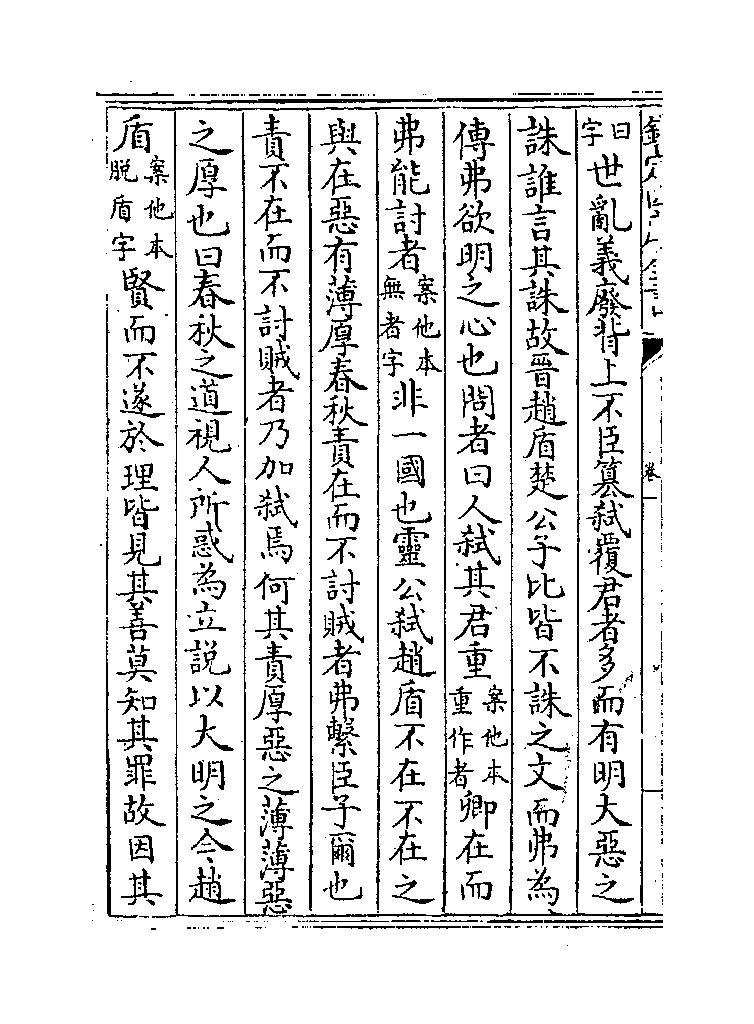 欽定四庫全書
卷一
曰字世亂義廢背上不臣篡弑覆君者多而有明大惡之
誅誰言其誅故晉趙盾楚公子比皆不誅之文而弗為
傳弗欲明之心也問者曰人弑其君重案他本重作者卿在而
弗能討者案他本無者字非一國也靈公弑趙盾不在不在之
與在惡有薄厚春秋責在而不討賊者弗繫臣子爾也
責不在而不討賊者乃加弑焉何其責厚惡之薄薄惡
之厚也曰春秋之道視人所惑為立説以大明之今趙
盾案他本脱盾字賢而不遂於理皆見其善莫知其罪故因其